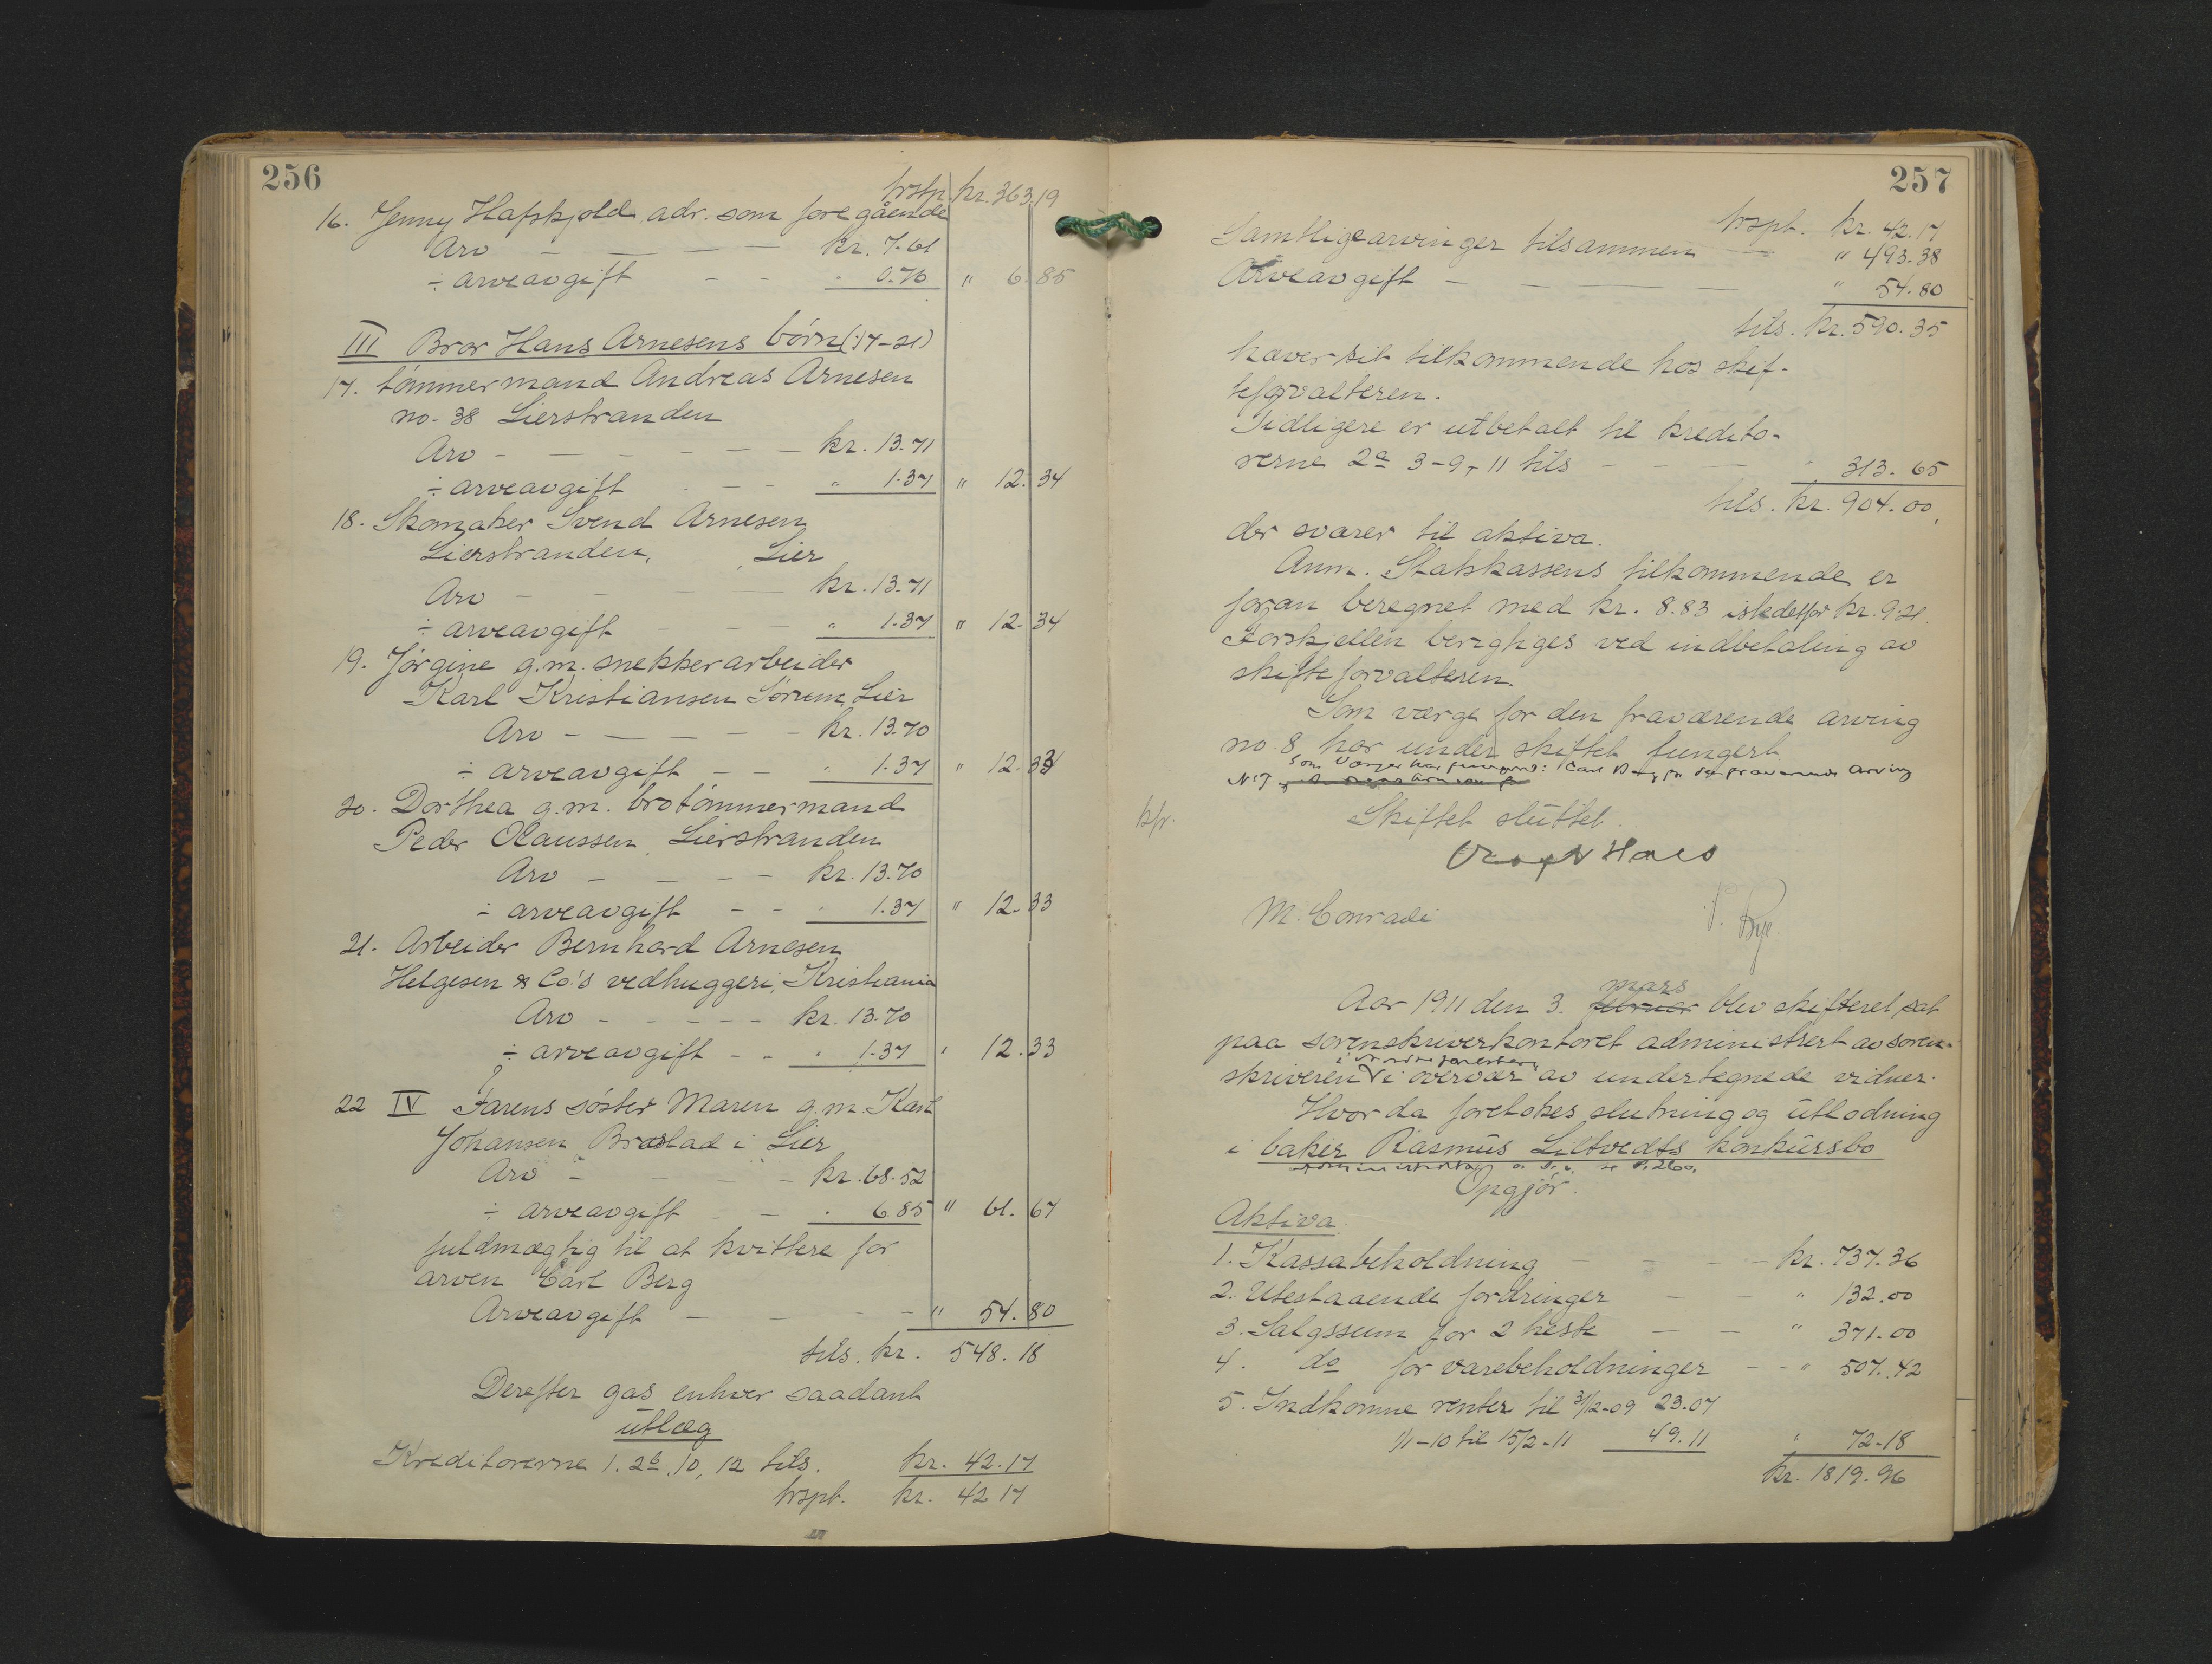 256
trsp. kr. 363.19
16. Jenny Hafskjold adr. som foregående
Arv — — — kr. 7.61
÷ arveavgift - - " 0.76 " 6.85
III Bror Hans Arnesens børn (:17-21)
17. tømmermand Andreas Arnesen
no. 38 Lierstranden
Arv - — — — — kr. 13.71
÷ arveavgift - — - " 1.37 " 12.34
18. Skomaker Svend Arnesen
Lierstranden, Lier
Arv - - - — kr. 13.71
÷ arveavgift - - — " 1.37 " 12.34
19. Jørgine g.m. snekkerarbeider
Karl Kristiansen Sørum, Lier
Arv - — — — - kr. 13.70
÷ arveavgift - - " 1.37 " 12.33
20. Dorthea g.m. brotømmermand
Peder Olaussen, Lierstranden
Arv - — - - kr. 13.70
÷ arveavgift - - " 1.37 " 12.33
21. Arbeider Bernhard Arnesen
Helgesen & Co's vedhuggeri, Kristiania
Arv - - - - - kr. 13.70
÷ arveavgift - - " 1.37 " 12.33
22 IV Farens søster Maren g.m. Karl
Johansen Brastad i Lier
Arv - - - - kr. 68.52
÷ arveavgift - — " 6.85 " 61.67
fuldmægtig til at kvittere for
arven Carl Berg
Arveavgift — - - " 54.80
tils. kr. 548.18
Derefter gas enhver saadant
utlæg
Kreditorerne 1. 2b, 10, 12 tils. kr. 42.17
trspt. kr. 42 17
257
trspt. kr. 42.17
Samtlige arvinger tilsammen — " 493.38
Arveavgift - — — — " 54.80
tils. kr. 590.35
hæver sit tilkommende hos skif-
teforvalteren.
Tidligere er utbetalt til kredito-
rerne 2a 3-9, 11 tils - - — " 313.65
tils. kr. 904.00,
der svarer til aktiva.
Anm. Statskassens tilkommende er
foran beregnet med kr. 8.83 istedetfor kr. 9.21.
Forskjellen berigtiges ved indbetaling av
skifteforvalteren.
Som værge for den fraværende arving
no. 8 har under skiftet fungert
Som Værger har fungeret: Carl Berg for de fraværende Arving
No 7
kfr.
Skiftet sluttet.
M. Conradi
P. Bye.
mars
Aar 1911 den 3. februar blev skifteret sat
paa sorenskriverkontoret administrert av soren-
skriveren i overvær av undertegnede vidner.
Hvorda foretokes slutning og utlodning
i baker Rasmus Liltvedts konkursbo
se P. 260.
Opgjør.
Aktiva.
1. Kassabeholdning - - - - kr. 737.36
2. Utestaaende fordringer — - " 132.00
3. Salgssum for 2 heste — — " 371.00
4. do for varebeholdninger - - " 507.42
5. Indkomne renter til 31/12-09 23.07
1/1-10 til 15/2-11 49.11 " 72.18
kr. 1819.96